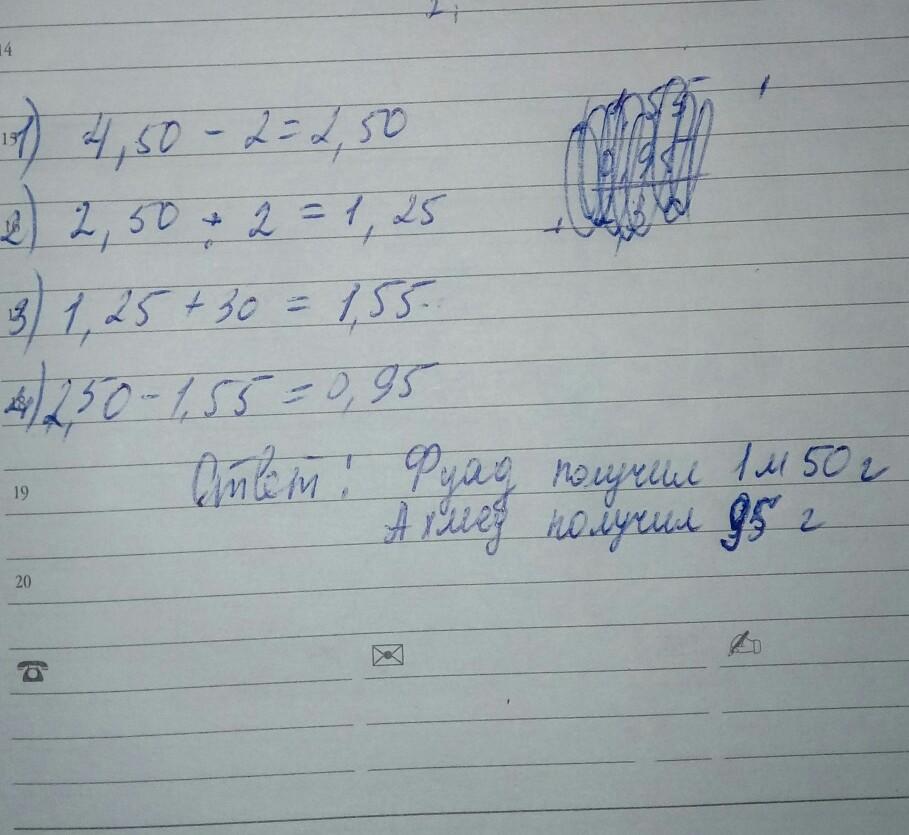 14
1) 4,50 - 2 = 2,50
2) 2,50 : 2 = 1,25
3) 1,25 + 30 = 1,55
4) 2,50 - 1,55 = 0,95
Ответ: Фуад получил 1 м 50 г
19
Ахмед получил 95 г
20